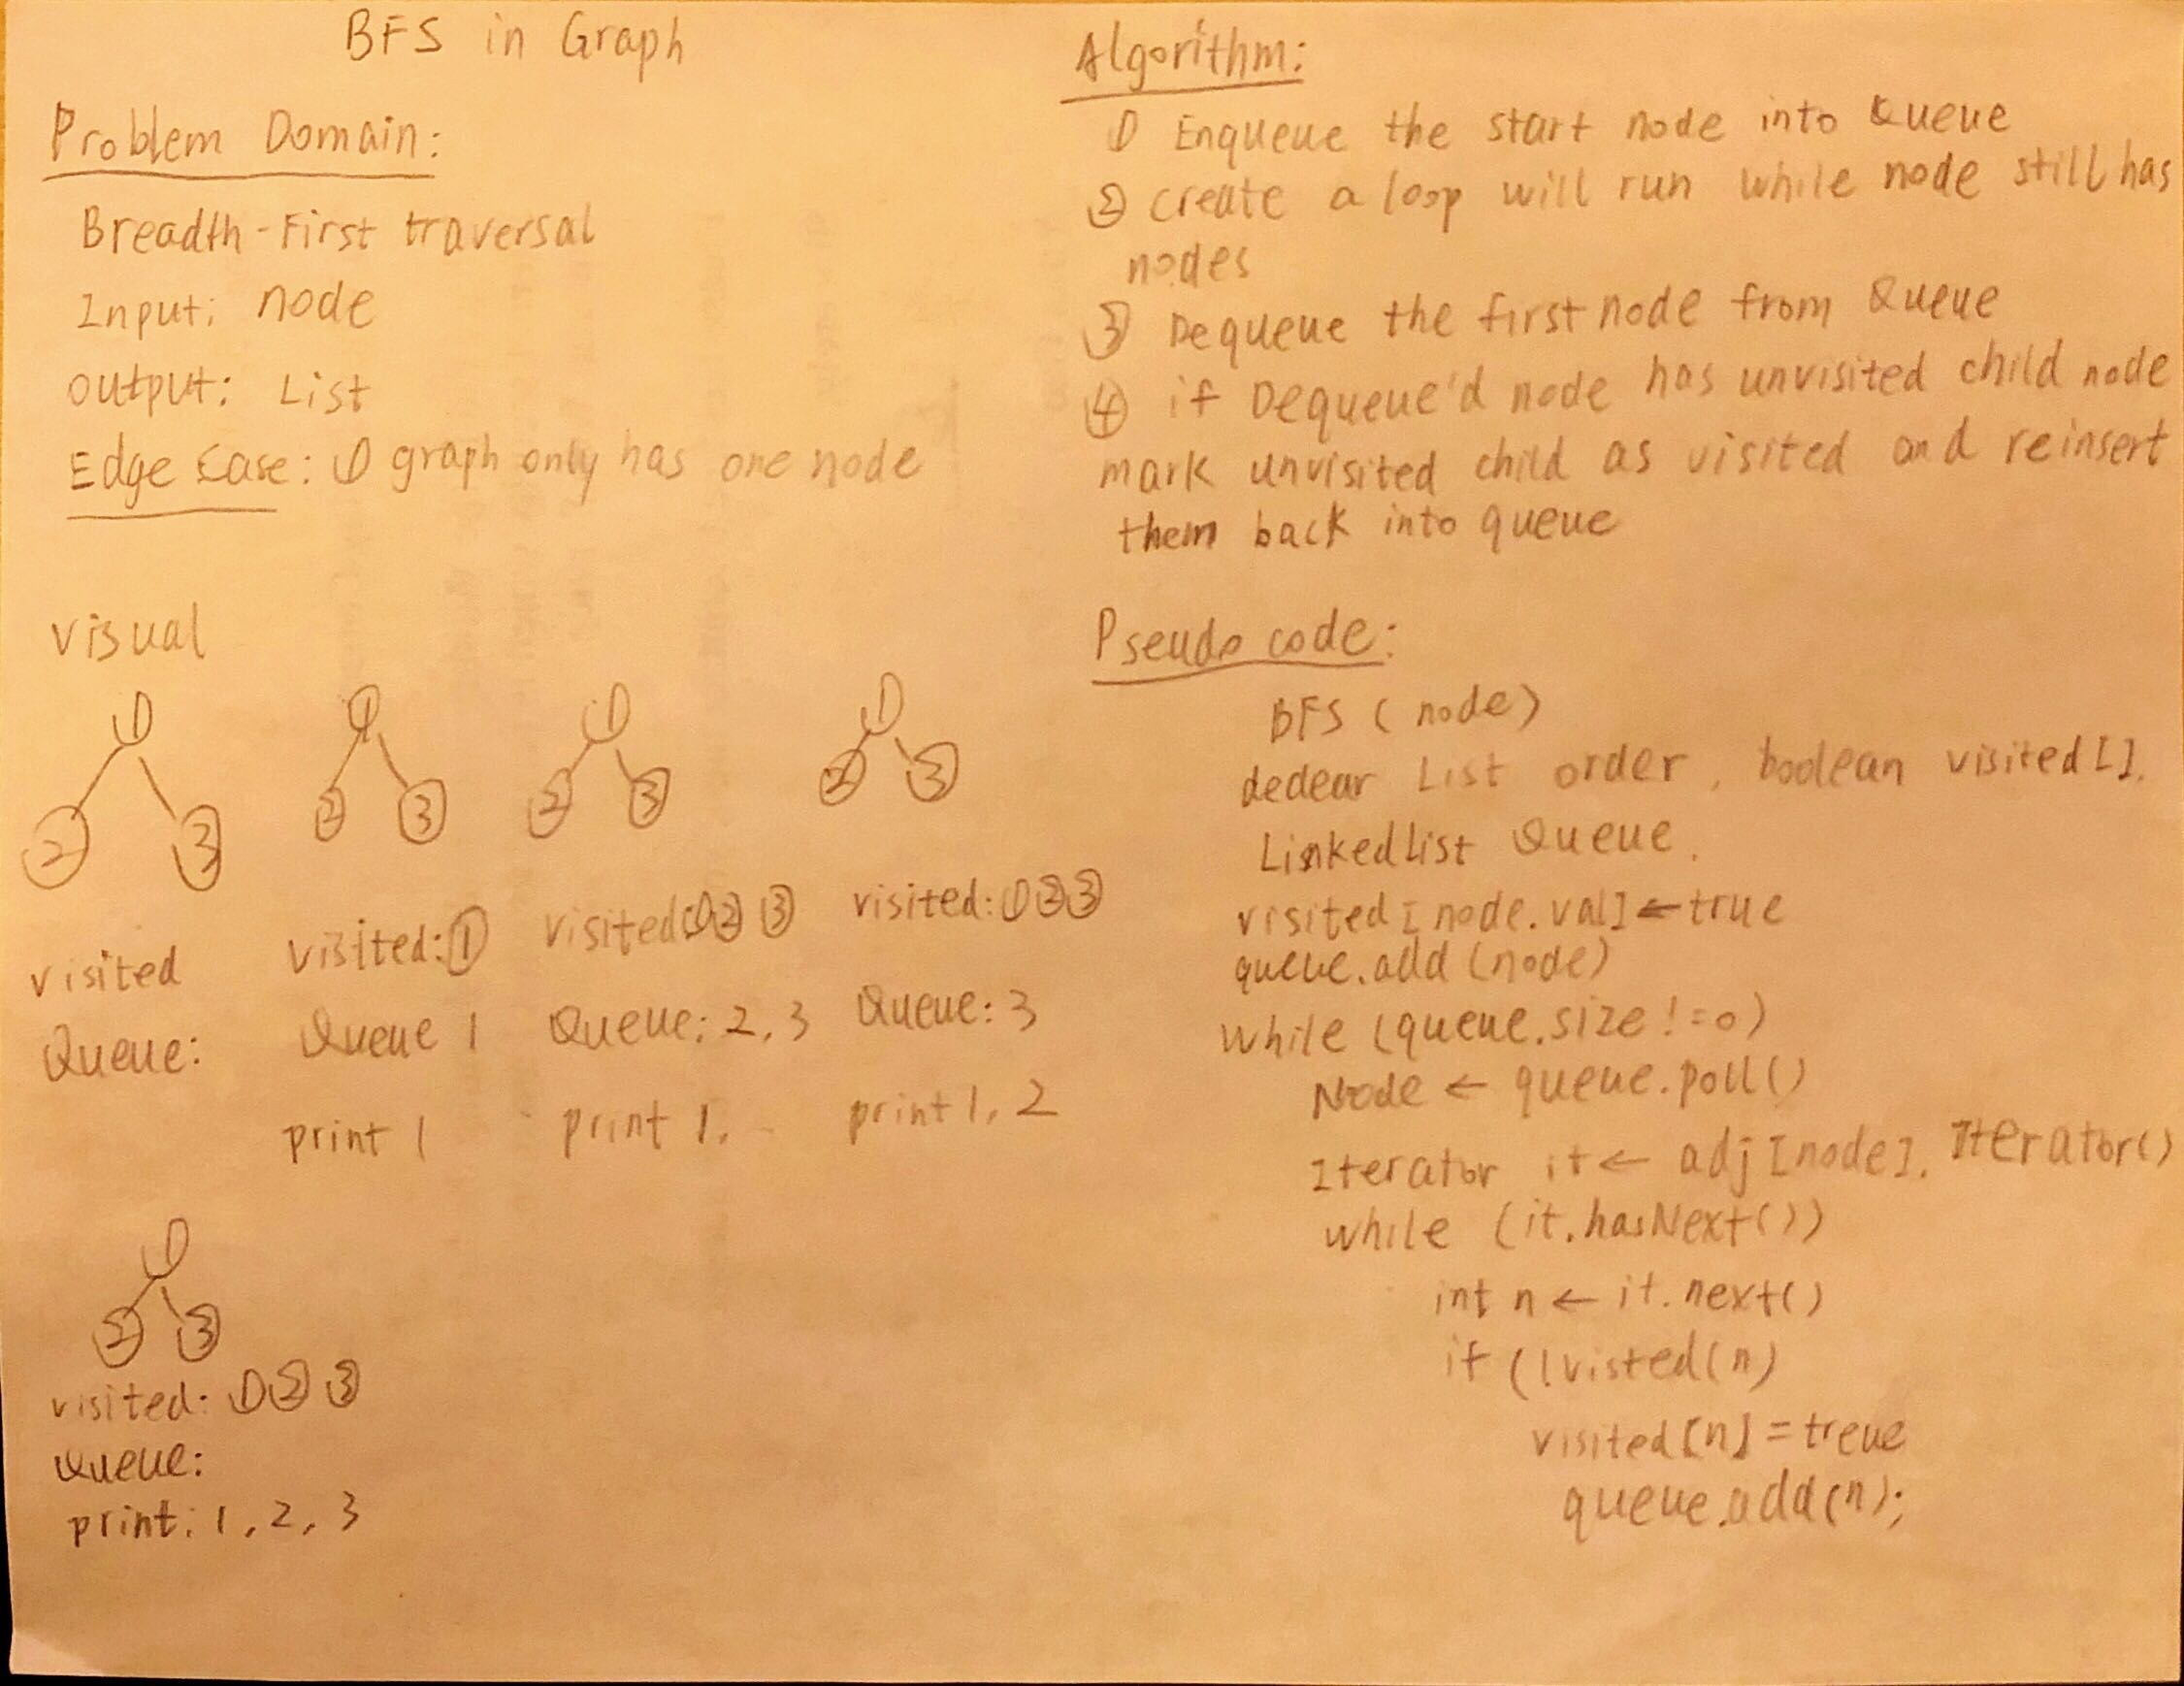 BFS in Graph
Problem Domain:
Breadth-First traversal
Input: node
output: List
Edge Case: ① graph only has one node
Visual
①
② ③
visited
Queue:
①
② ③
visited: ①
Queue 1
print 1
①
② ③
visited: ① ② ③
Queue: 2, 3
print 1,
①
② ③
visited: ① ② ③
Queue: 3
print 1, 2
①
② ③
visited: ① ② ③
Queue:
print: 1, 2, 3
Algorithm:
① Enqueue the start node into Queue
② create a loop will run while node still has
nodes
③ Dequeue the first node from Queue
④ if Dequeue'd node has unvisited child node
mark unvisited child as visited and reinsert
them back into queue
Pseudo code:
BFS ( node)
dedear List order, boolean visited[].
Linkedlist Queue.
visited[node.val] ← true
queue.add (node)
while (queue.size != 0)
Node ← queue.poll()
Iterator it ← adj [node]. Iterator()
while (it.hasNext())
int n ← it.next()
if (!visted(n)
visited[n] = treue
queue.add(n);